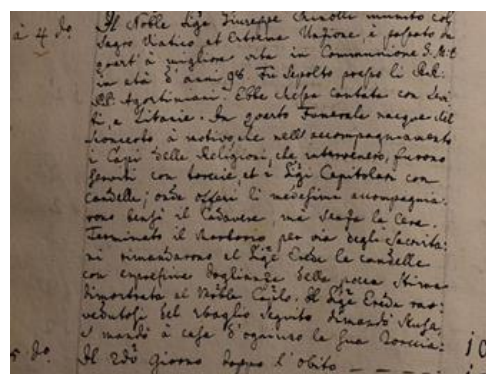 à 4 do. Il Noble Sigr Giuseppe munito col
Sagro Viatico et Estrema Unzione, è passato da
quest' à miglior vita in Communione S. M. E
in età d'anni 96. Fù Sepolto presso li RR.
PP. Agostiniani. Ebbe Messa cantata con
e Litanie. In questo Funerale nacque del
sconcerto, à motivo che nell'accompagnamento
i Capi delle Religioni, che intervenero, furono
serviti con torcie, et i Sigri Capitolari con
candelle; onde offesi li medesimi accompagna-
rono bensì il Cadavere mà senza la Cera.
Terminato il per via degli Sacrista-
ni rimandarono al Sigr Erede le candelle
con espressive doglianze della pocca stima
dimostrata al Noble Caplo. Il Sigr Erede rav-
vedutosi del sbaglio seguito dimandò scusa,
e mandò à casa d'ogniuno la sua Torcia.
5 do. Il 2do Giorno doppo l'obito